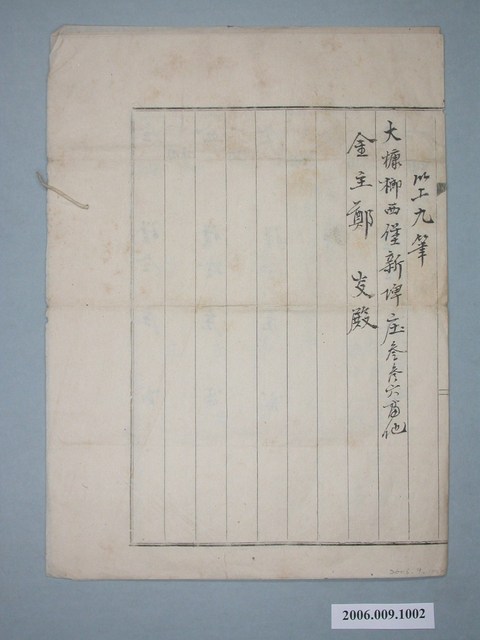 以上九筆
大槺榔西堡新埤庄叁叁六番地
金主鄭 发殿
2006.009.1002